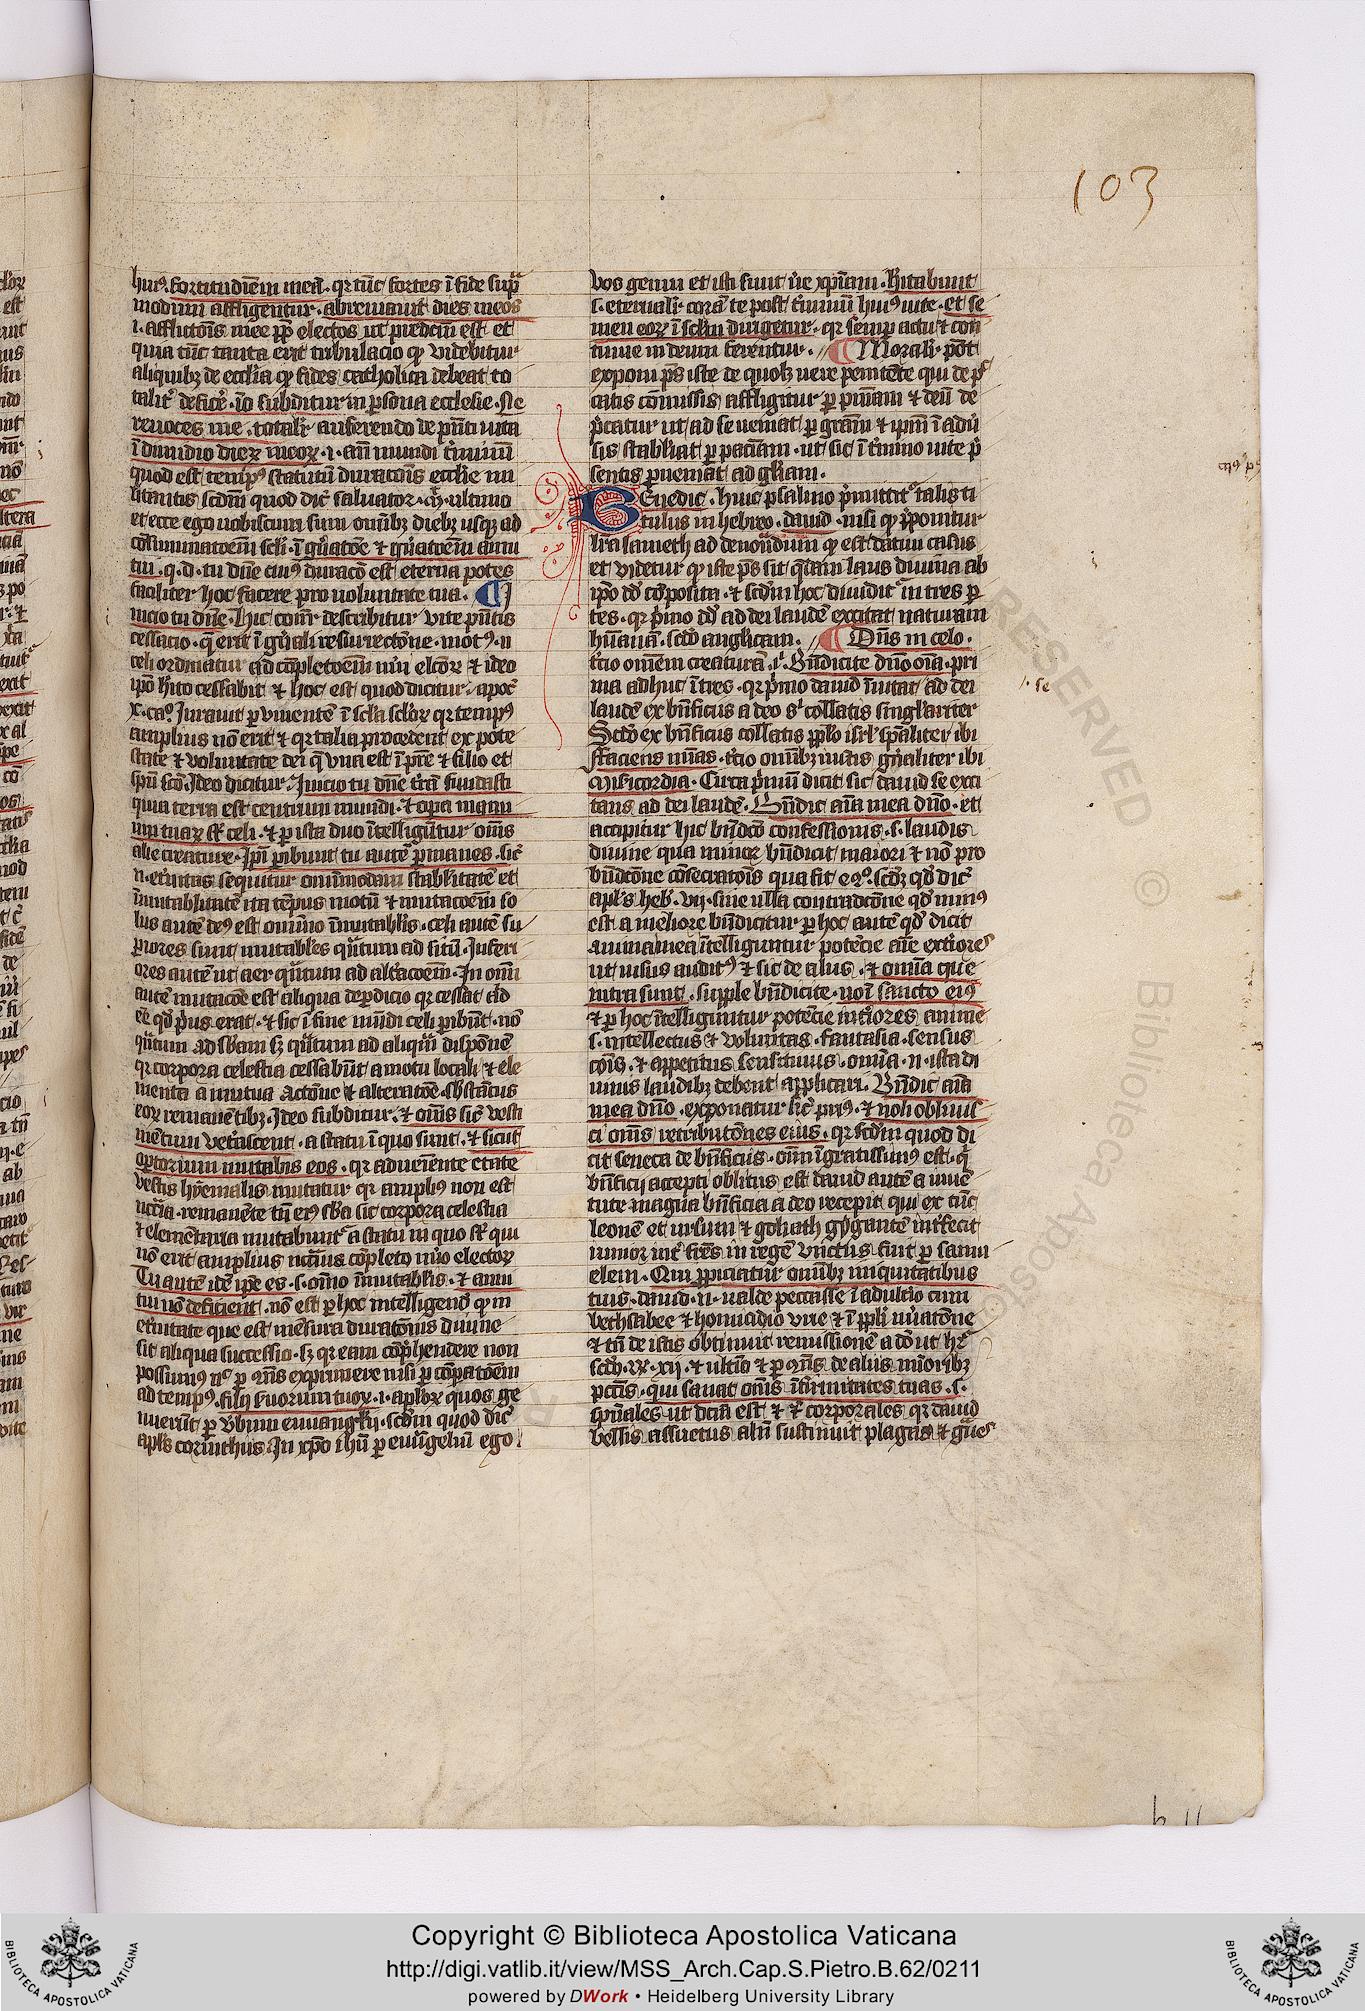 103
huiꝰ. fortitudinē meā. qꝛ tūc fortes ī fide supͣ
modum affligentur. abreuiauit dies meos
i. afflictōis mee ꝓp̄ electos ut predictū est et
quia tūc tanta erit tribulacio qꝫ videbitur
aliquibꝫ de ecclīa qꝫ fides catholica debeat to
talitͬ deficē. iō subditur in ꝑsona ecclesie. Ne
reuoces me. totalr̄ auferendo de pn̄ti uita
ī dimidio dieꝝ meoꝝ. i. an̄ mundi t̄minū
quod est tempꝰ statutū duracōis ecclīe mi
litantis scd̄m quod dic̄ saluator. mͭ. ultimo
et ecce ego uobiscum sum om̄ibꝫ diebꝫ usqꝫ ad
cōsummatōem sclī. ī gn̄atōe ⁊ gn̄atōem anni
tui. q. d. tu dn̄e cuiꝰ duracō est eterna potes
faciliter hoc facere pro uoluntate tua. ¶ I
nicio tu dn̄e. Hic cōm̄ describitur vite pn̄tis
cessacio. q̄ erit ī gn̄ali resurrectōne. motꝰ. n
celi ordinatur ad cōpletōem nūi elcōꝝ ⁊ ideo
ip̄o h̄ito cessabit ⁊ hoc est quod dicitur. apoc̄
x. caº. Iurauit ꝑ viuentē ī scl̄a scl̄oꝝ qꝛ tempꝰ
amplius nō erit ⁊ qꝛ talia procedent ex pote
state ⁊ voluntate dei q̄ vna est ī pr̄e ⁊ filio et
sp̄u scō. Ideo dicitur. Inicio tu dn̄e t̄rā fundasti
quia terra est centrum mundi. ⁊ opera manu
um tuaꝝ st̄ celi. ⁊ ꝑ ista duo ītelligūtur om̄s
alie creature. Ip̄i ꝑibunt tu autē ꝑmanes. sic̄
n. et̄nitas sequitur om̄imodam stabilitatē et
īmutabilitatē ita tēpus motū ⁊ mutacōem so
lus autē deꝰ est omnino īmutabilis. celi autē su
ꝑiores sunt mutabiles qͣntum ad sitū. Inferi
ores autē ut aer qͣntum ad alt̄acōem. In om̄i
autē mutacōe est aliqua deꝑdicio qꝛ cessat id
eē qd̄ pͥus erat. ⁊ sic ī fine mūdi celi ꝑibūt. nō
qͣntum ad sb̄am sꝫ qͣntum ad aliquā disponē
qꝛ corpora celestia cessabūt a motu locali ⁊ ele
menta a mutua actōne ⁊ alteratōe. sb̄stātiis
eoꝝ remanētibꝫ. Ideo subditur. ⁊ om̄s sic̄ vesti
mētum vet̄ascent. a statu ī quo sunt. ⁊ sicut
oꝑtorium mutabis eos. qꝛ adueniente estate
vestis hyemalis mutatur qꝛ ampliꝰ non est
nc̄c̄ia. remanēte tn̄ eiꝰ sb̄a sic corpora celestia
⁊ elemētaria mutabuntᷣ a statu in quo st̄ qui
nō erit amplius nc̄c̄ius cōpleto nūo electoꝝ
Tu autē idē ip̄e es. s. om̄ino īmutabilis. ⁊ anni
tui nō deficient. nō est ꝑ hoc intelligendū qꝫ in
et̄nitate que est mēsura duratōnis diuine
sit aliqua successio. sꝫ qꝛ eam cōp̄hendere non
possumꝰ nͨ ꝑ ꝯn̄s exprimere nisi ꝑ cōparatōem
ad tempꝰ. filij seruorum tuoꝝ. i. apl̄oꝝ quos ge
nuerūt ꝑ v̄bum euuangelij. scd̄m quod dic̄
apl̄s corinthiis. In xp̄o ih̄u ꝑ euāgeliū ego
vos genui et isti sunt ūe xp̄iani. Hītabunt
s. et̄nalr̄. corā te post t̄minū huiꝰ vite. et se
men eoꝝ ī sclm̄ dirigetur. qꝛ semꝑ actu ⁊ con
tinue in deum ferentur. // ¶ Moralr̄. pōt
exponi ps̄ iste de quolꝫ uere penitēte qui de p̄
catis cōmissis affligitur ꝑ pniam ⁊ deū de
p̄catur ut ad se ueniat ꝑ grām ⁊ ip̄m ī aduͬ
sis stabiliat ꝑ paciam. ut sic ī t̄mino uite p̄
sentis ꝑueniat ad gl̄iam.
Benedic. huic psalmo p̄mittitͬ talis ti
tulus in hebreo. dauid. nisi qꝫ p̄ponitur
lr̄a lameth ad denotādum qꝫ est datiui casus
et videtur qꝫ iste ps̄ sit qͣdam laus diuina ab
ip̄o dd̄ cōposita. ⁊ scd̄m hoc diuiditͬ in tres ꝑ
tes. qꝛ pͥmo dd̄ ad dei laudē excitat naturam
hūanā. scd̄o anglicam. // ¶ Dn̄s in celo.
t̄cio om̄em creaturā. i. Bn̄dicite dn̄o om̄a. pri
ma adhuc ī tres. qꝛ pͥmo dauid īuitat ad dei
laudē ex bn̄ficiis a deo sͥ collatis singl̄ariter
Scd̄o ex bn̄ficiis collatis pplo isrl̄ sp̄aliter ibi
Faciens mīas. t̄cio om̄ibꝫ iustis gn̄aliter ibi
Misericordia. Circa pͥmū dicit sic dauid se exci
tans ad dei laudē. Bn̄dic aīa mea dn̄o. et
accipitur hic bn̄dcō confessionis. s. laudis
diuine qua minor bn̄dicit maiori ⁊ nō pro
bn̄dictōne cōsecratōis qua fit eº. scd̄ꝫ qd̄ dic̄
apl̄s heb̄. vij. sine ulla contradictōne qd̄ minꝰ
est a meliore bn̄dicitur ꝑ hoc autē qd̄ dicit
anima mea ītelliguntur potēcie aīe ext̄iores
ut uisus auditꝰ ⁊ sic de aliis. ⁊ om̄ia que
intra sunt. supple bn̄dicite. noī sancto eiꝰ
⁊ ꝑ hoc ītelliguntur potēcie int̄iores anime
s. intellectus ⁊ voluntas. fantasia. sensus
cōis. ⁊ appetitus sensitiuus. om̄ia. n. ista di
uinis laudibꝫ debent applicari. Bn̄dic aīa
mea dn̄o. exponatur sic̄ priꝰ. ⁊ noli obliuis
ci om̄s retributōnes eius. qꝛ scd̄m quod di
cit seneca de bn̄ficiis. om̄ī īgratissimꝰ est. qͥ
bn̄ficij accepti oblitus est dauid autē a iuuē
tute magna bn̄ficia a deo recepit qui ex tūc
leonē et ursum ⁊ goliath gygantē int̄fecit
iunior int̄ fr̄es in regē vnctus fuit ꝑ samu
elem. Qui ꝓpiciatur om̄ibꝫ iniquitatibus
tuis. dauid. n. ualde peccasse ī adult̄io cum
bethsabee ⁊ homicidio vrie ⁊ ī ppli nūatōne
⁊ tn̄ de istis obtinuit remissionē a dō ut hr̄
scd̄o. ꝶ. xij. ⁊ ultīo ⁊ ꝑ ꝯn̄s de aliis mīoribꝫ
pctīs. qui sanat om̄s īfirmitates tuas. s.
sp̄uales ut dictū est ⁊ ēt corporales qꝛ dauid
bellis assuetus aliqn̄ sustinuit plagas ⁊ gͣues
. se
RESERVED
© Biblioteca Aposto
Copyright © Biblioteca Apostolica Vaticana
http://digi.vatlib.it/view/MSS_Arch.Cap.S.Pietro.B.62/0211
powered by DWork • Heidelberg University Library
BIBLIOTECA APOSTOLICA VATICANA
BIBLIOTECA APOSTOLICA VATICANA